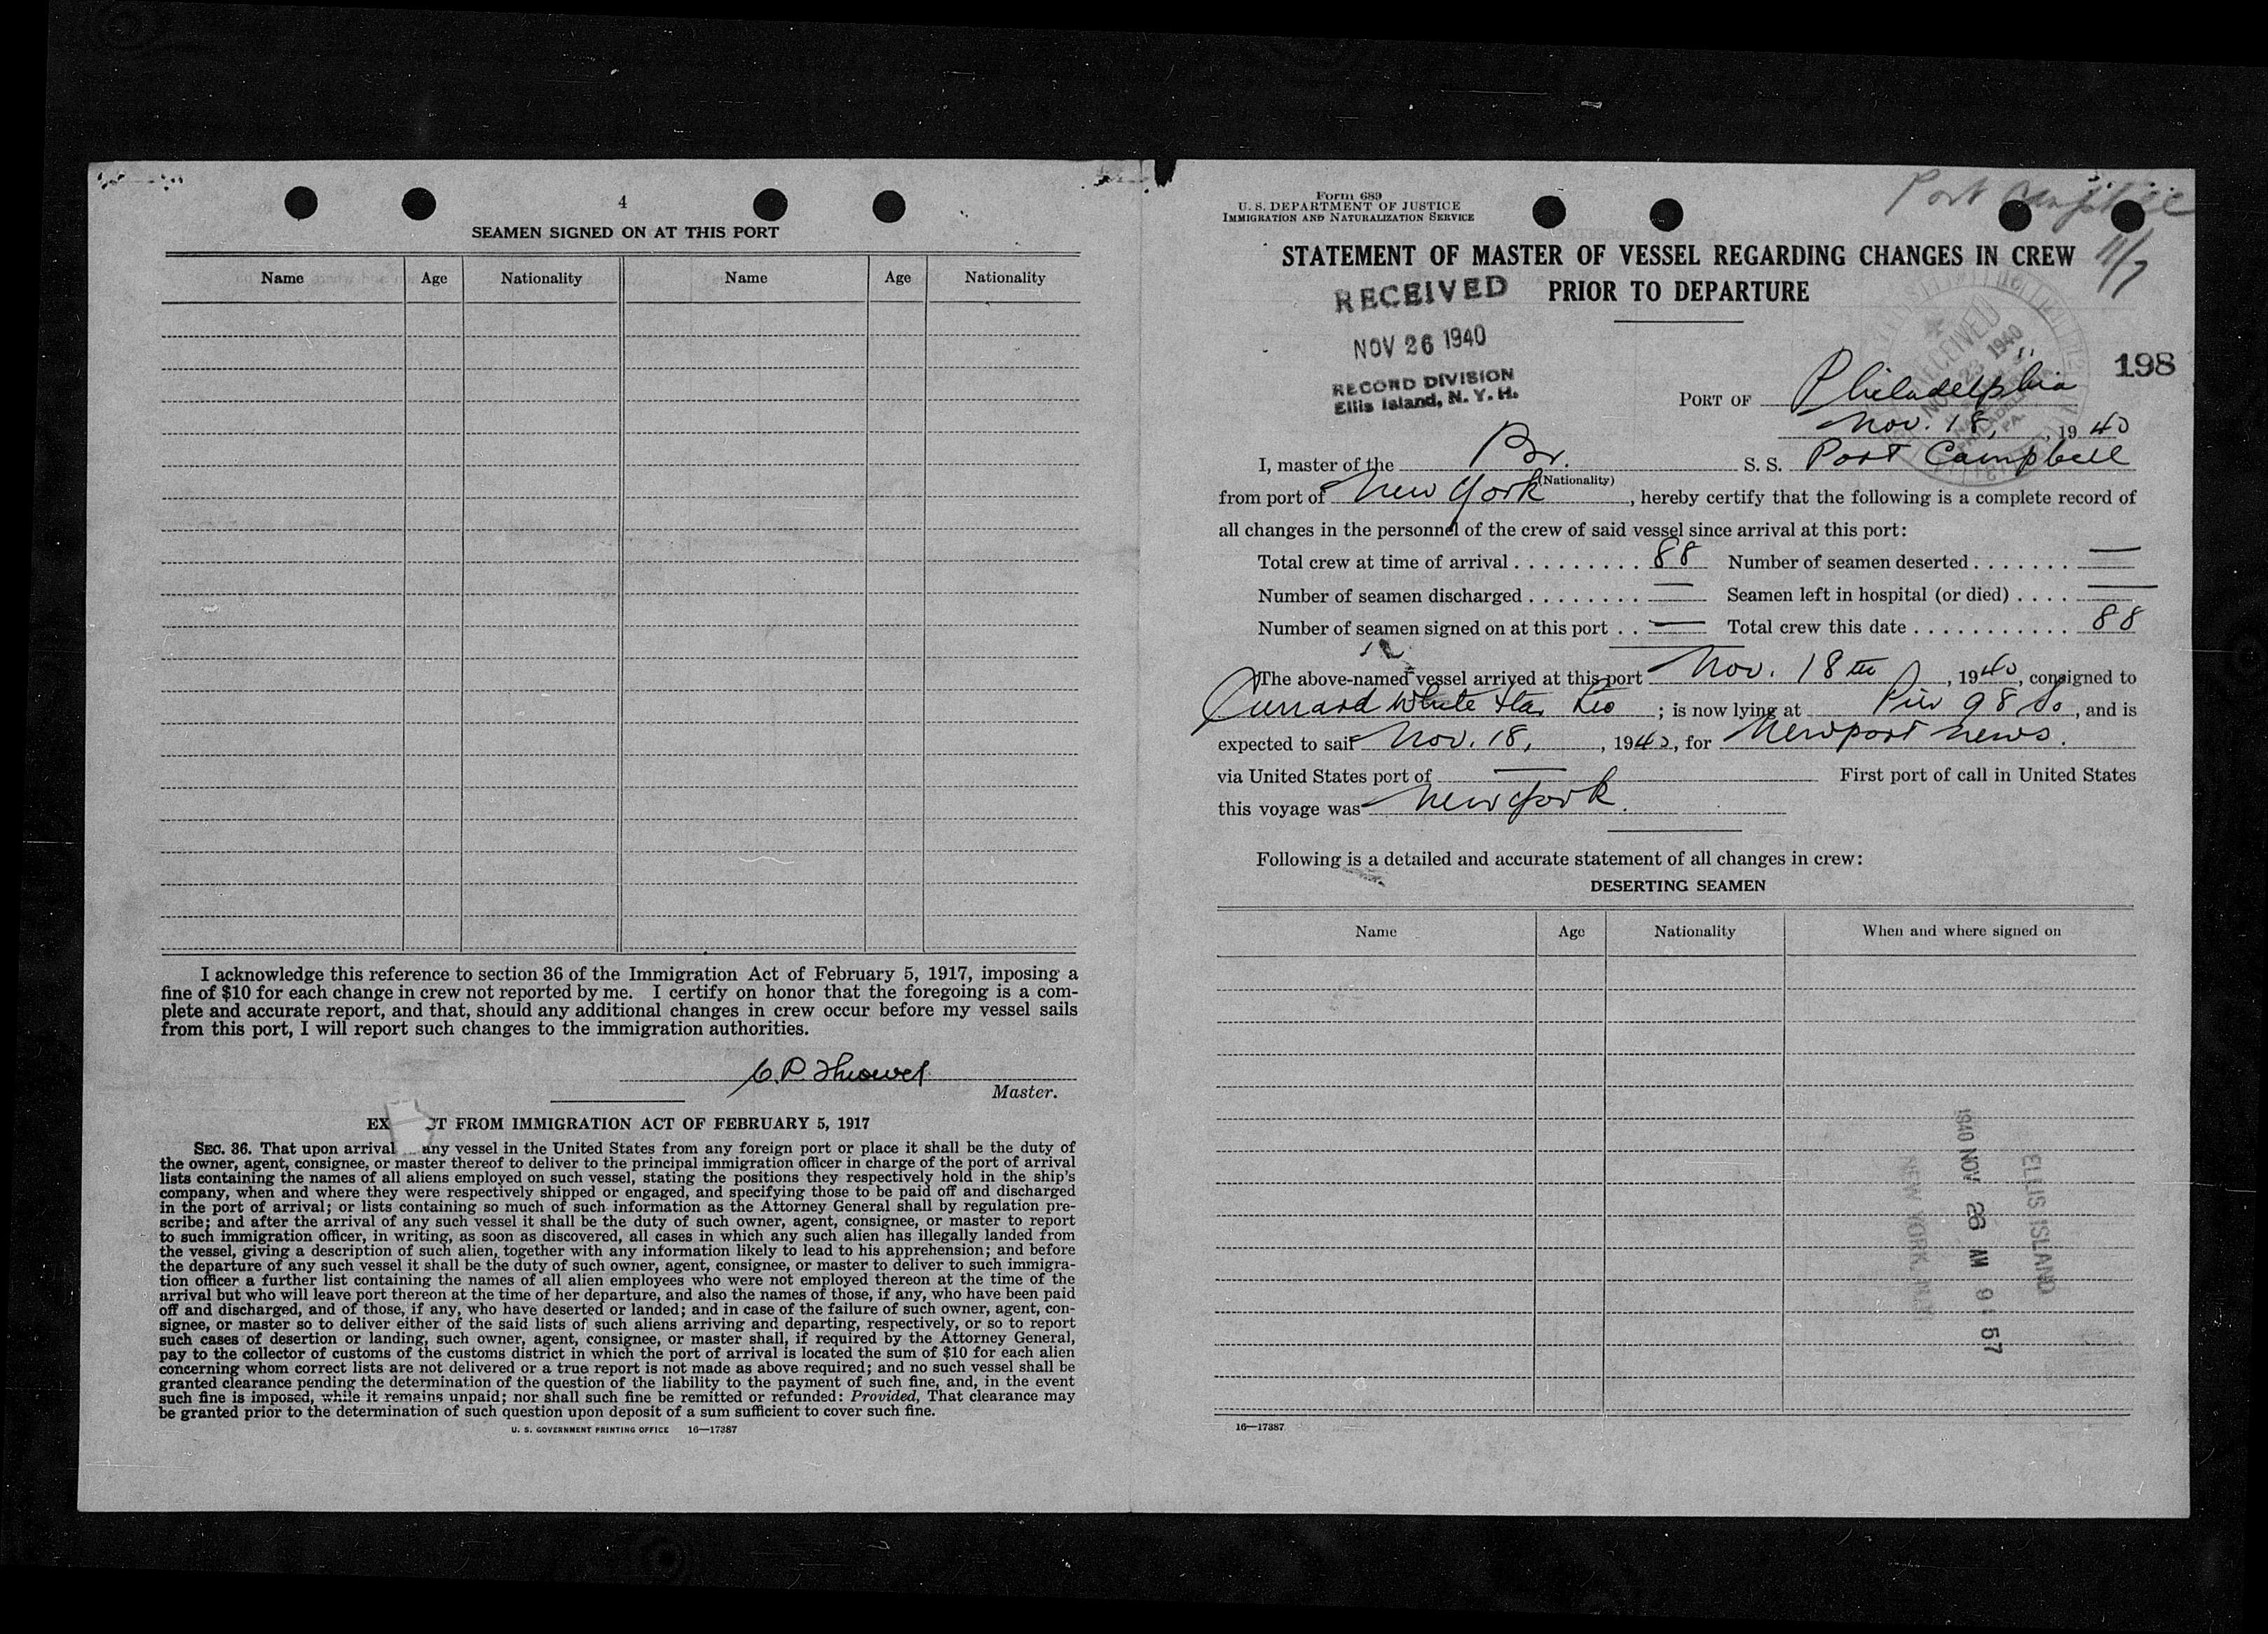 4
SEAMEN SIGNED ON AT THIS PORT
Name Age Nationality Name Age Nationality
I acknowledge this reference to section 36 of the Immigration Act of February 5, 1917, imposing a
fine of $10 for each change in crew not reported by me. I certify on honor that the foregoing is a com-
plete and accurate report, and that, should any additional changes in crew occur before my vessel sails
from this port, I will report such changes to the immigration authorities.
Master.
EX CT FROM IMMIGRATION ACT OF FEBRUARY 5, 1917
SEC. 36. That upon arrival any vessel in the United States from any foreign port or place it shall be the duty of
the owner, agent, consignee, or master thereof to deliver to the principal immigration officer in charge of the port of arrival
lists containing the names of all aliens employed on such vessel, stating the positions they respectively hold in the ship's
company, when and where they were respectively shipped or engaged, and specifying those to be paid off and discharged
in the port of arrival; or lists containing so much of such information as the Attorney General shall by regulation pre-
scribe; and after the arrival of any such vessel it shall be the duty of such owner, agent, consignee, or master to report
to such immigration officer, in writing, as soon as discovered, all cases in which any such alien has illegally landed from
the vessel, giving a description of such alien, together with any information likely to lead to his apprehension; and before
the departure of any such vessel it shall be the duty of such owner, agent, consignee, or master to deliver to such immigra-
tion officer a further list containing the names of all alien employees who were not employed thereon at the time of the
arrival but who will leave port thereon at the time of her departure, and also the names of those, if any, who have been paid
off and discharged, and of those, if any, who have deserted or landed; and in case of the failure of such owner, agent, con-
signee, or master so to deliver either of the said lists of such aliens arriving and departing, respectively, or so to report
such cases of desertion or landing, such owner, agent, consignee, or master shall, if required by the Attorney General,
pay to the collector of customs of the customs district in which the port of arrival is located the sum of $10 for each alien
concerning whom correct lists are not delivered or a true report is not made as above required; and no such vessel shall be
granted clearance pending the determination of the question of the liability to the payment of such fine, and, in the event
such fine is imposed, while it remains unpaid; nor shall such fine be remitted or refunded: Provided, That clearance may
be granted prior to the determination of such question upon deposit of a sum sufficient to cover such fine.
U. S. GOVERNMENT PRINTING OFFICE 16—17387
Form 689
U. S. DEPARTMENT OF JUSTICE
IMMIGRATION AND NATURALIZATION SERVICE
Port Campbell
11/7
STATEMENT OF MASTER OF VESSEL REGARDING CHANGES IN CREW
PRIOR TO DEPARTURE
RECEIVED
NOV 26 1940
RECORD DIVISION
Ellis Island, N. Y. H.
RECEIVED
NOV 23 1940
PHILADELPHIA
PA.
198
PORT OF Philadelphia
Nov. 18, , 19 40
I, master of the Br. S. S. Port Campbell
(Nationality)
from port of New York , hereby certify that the following is a complete record of
all changes in the personnel of the crew of said vessel since arrival at this port:
Total crew at time of arrival . . . . . . . . . 88 Number of seamen deserted . . . . . . . —
Number of seamen discharged . . . . . . . . — Seamen left in hospital (or died) . . . . —
Number of seamen signed on at this port . . — Total crew this date . . . . . . . . . . . 88
The above-named vessel arrived at this port Nov. 18th , 1940, consigned to
Cunard White Star ; is now lying at Pier 98 So , and is
expected to sail Nov. 18, , 1940, for Newport News.
via United States port of — First port of call in United States
this voyage was New York.
Following is a detailed and accurate statement of all changes in crew:
DESERTING SEAMEN
Name Age Nationality When and where signed on
ELLIS ISLAND
1940 NOV 26 AM 9 57
NEW YORK
16—17387